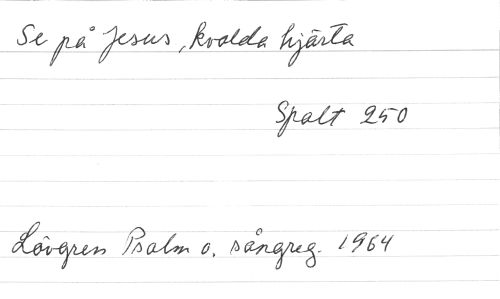 Se på Jesus, kvalda hjärta
Spalt 250
Lövgren Psalm o. sångreg. 1964